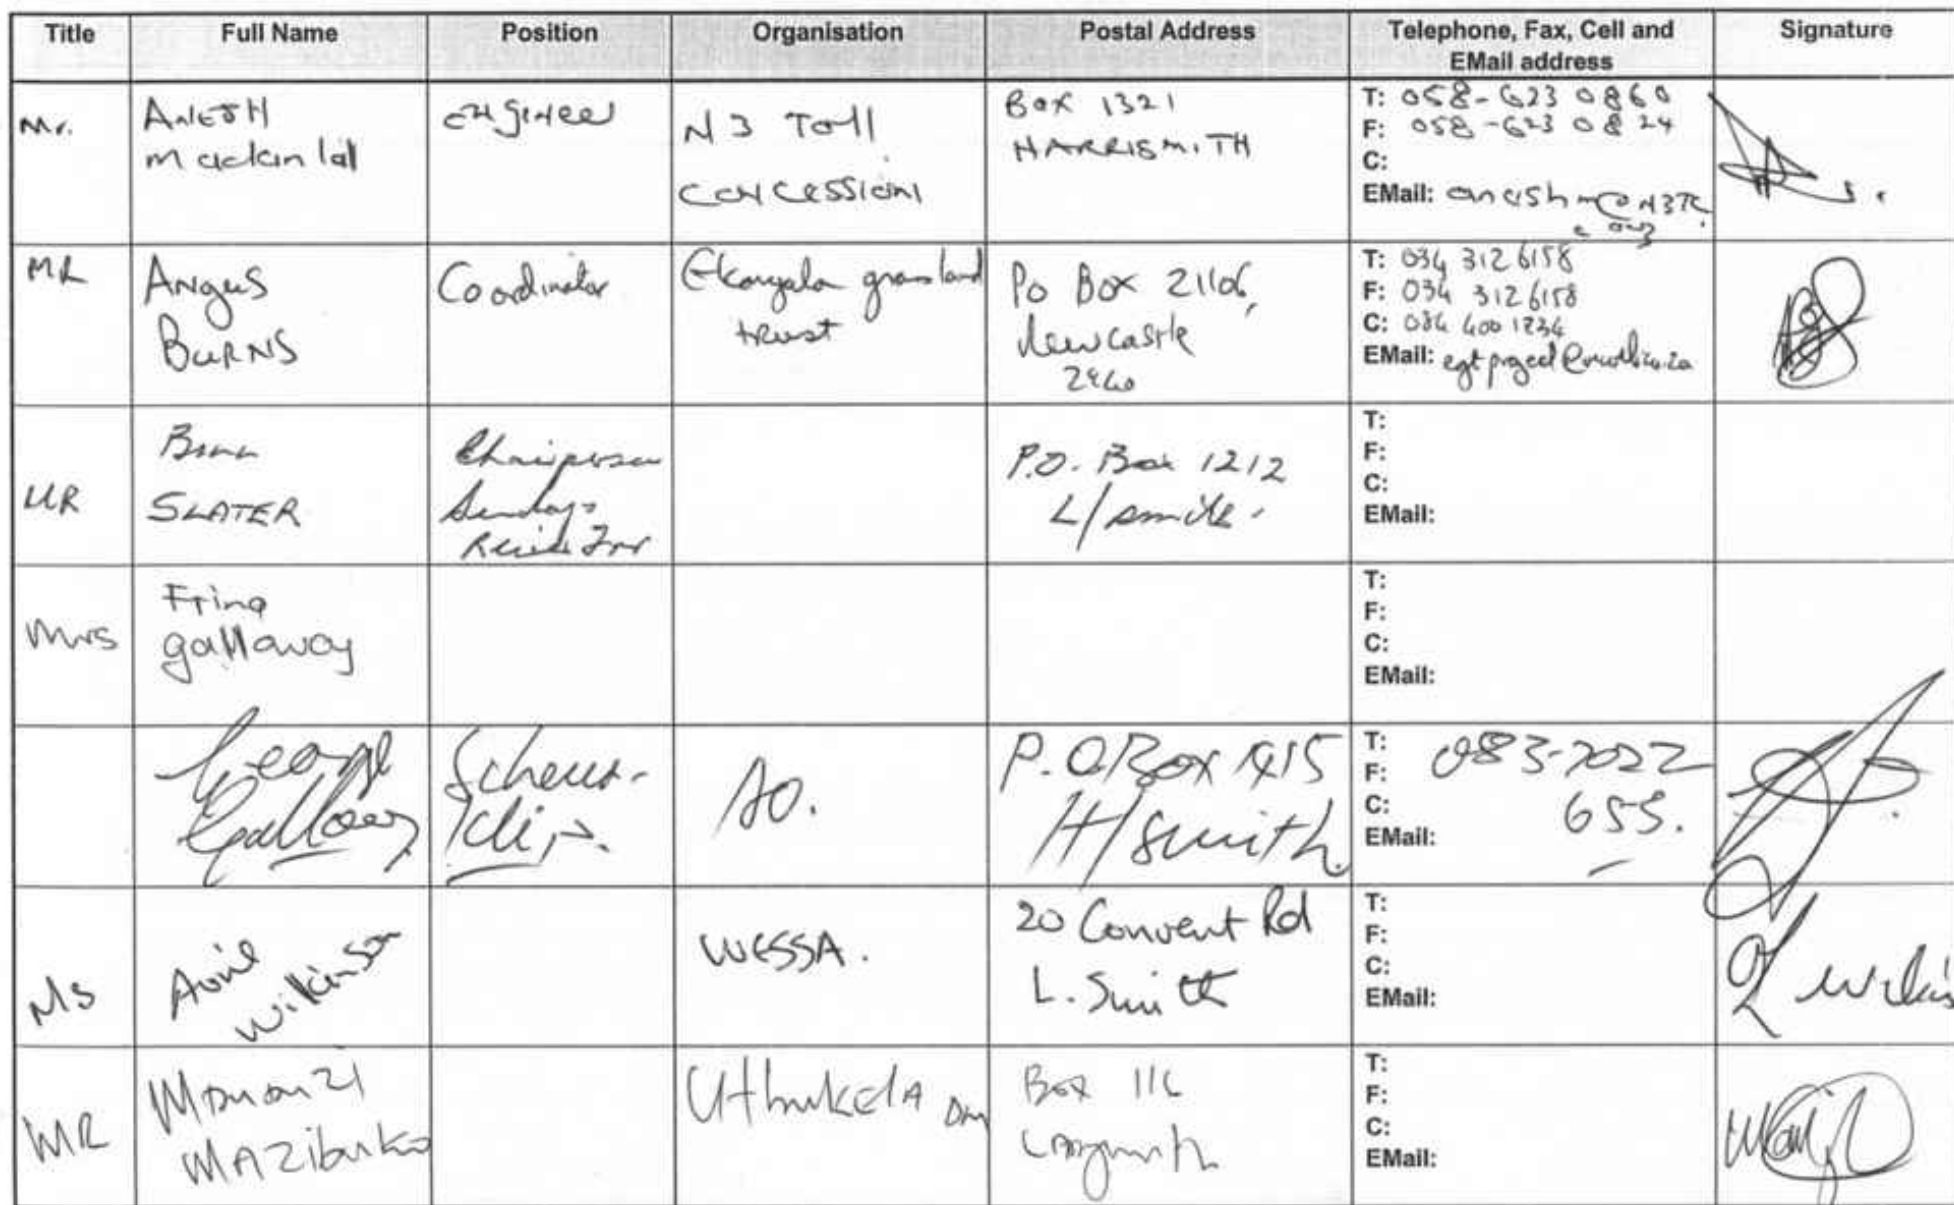 Title Full Name Position Organisation Postal Address Telephone, Fax, Cell and EMail address Signature
Mr.
ANESH
mackinlal
engineer
N3 Toll
Concession
Box 1321
HARRISMITH
T: 058-623 0860
F: 058-623 0824
C:
EMail:
MR
Angus
BURNS
Coordinator
Ekangala grassland
trust
Po Box 21106,
Newcastle
2940
T: 034 312 6158
F: 034 312 6158
C:
EMail:
MR
SLATER
Chairperson
Sundays
P.O. Box 1212
L/smith.
T:
F:
C:
EMail:
Mrs
gallaway
T:
F:
C:
EMail:
George
Galloway
P.O Box 1415
H/Smith.
T: 083-7022
F:
C: 655.
EMail:
Ms
Avril
Wilkinson
WESSA.
20 Convent Rd
L. Smith
T:
F:
C:
EMail:
MR
MAZibuko
UthukelA DM
Box 116
Ladysmith
T:
F:
C:
EMail: